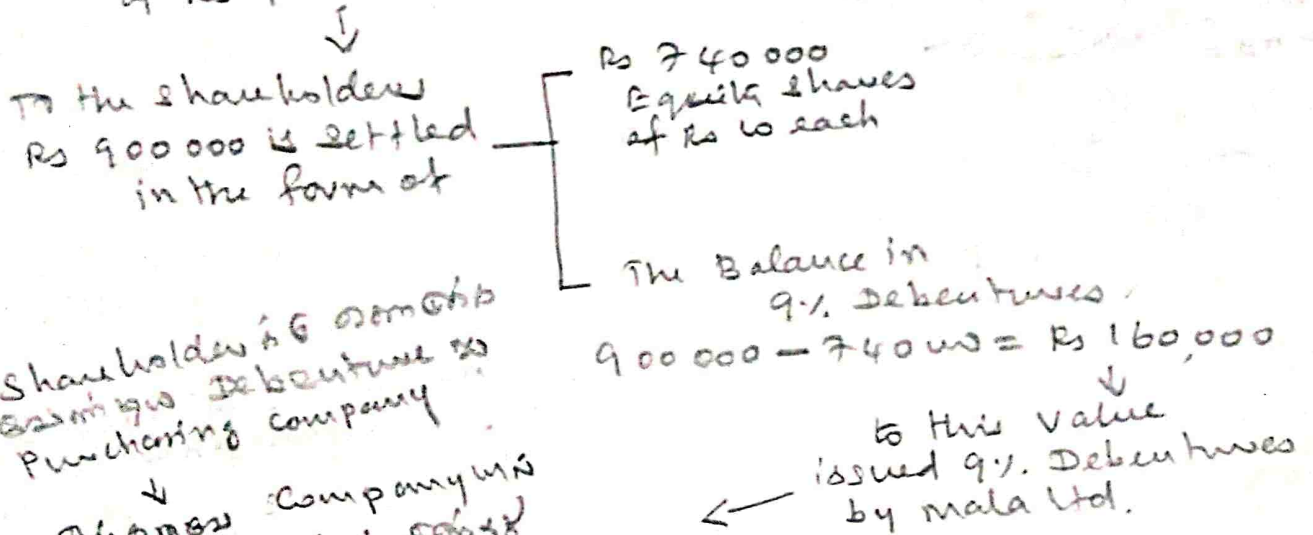 To the shareholders
Rs 900 000 is settled
in the form of
Rs 740 000
Equity shares
of Rs 10 each
The Balance in
9%. Debentures.
900 000 - 740 000 = Rs 160,000
to this value
issued 9%. Debentures
by mala Ltd.
Shareholder
Debenture
Purchasing company
company